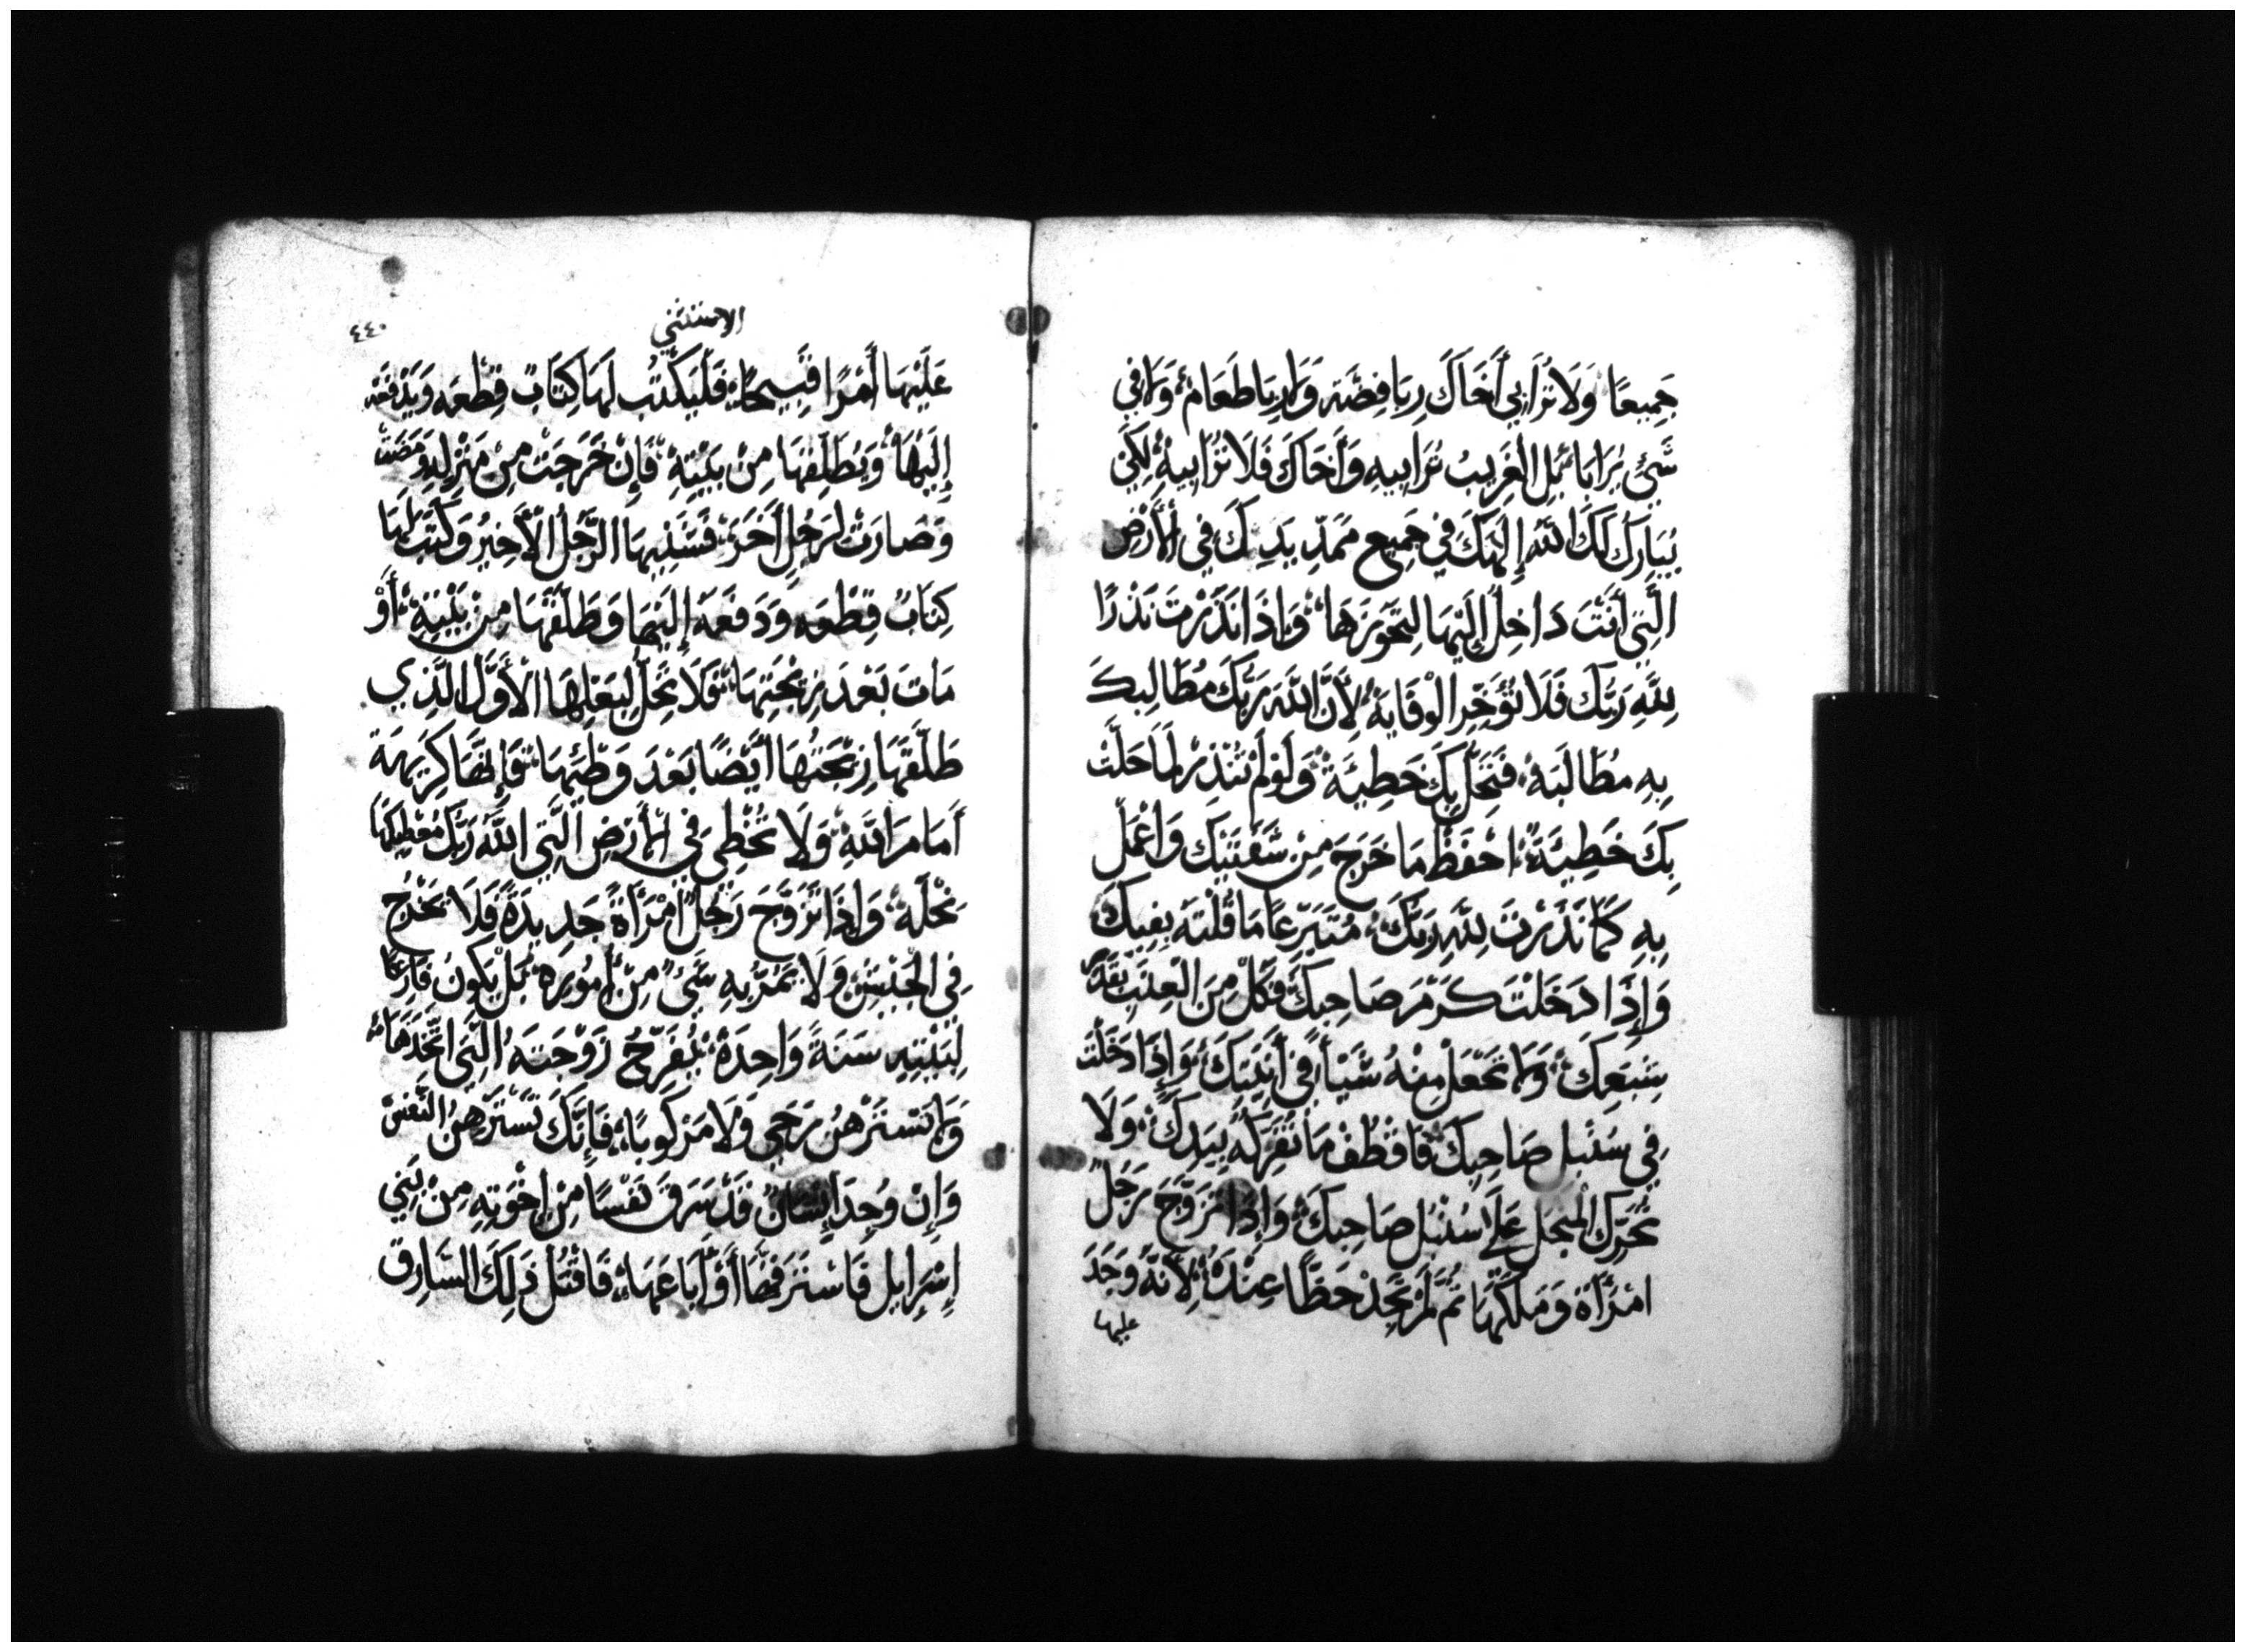 جَمِيعًا وَلَا تُرَابِي أَخَاكَ رِبَا فِضَّة وَلَا رِبَا طَعَامْ وَلَا فِي
شَيْءٍ يُرَابَا بَلِ الْغَرِيبُ تُرَابِيهِ وَأَخَاكَ فَلَا تُرَابِيهِ لِكَيْ
يُبَارِكَ لَكَ اللّٰهُ إِلَهَكَ فِي جَمِيعِ مَمَدِّ يَدِكَ فِي الْأَرْضِ
الَّتِي أَنْتَ دَاخِلٌ إِلَيْهَا لِتَحَوُزَهَا وَإِذَا نَذَرْتَ نَذْرًا
لِلّٰهِ رَبِّكَ فَلَا تُؤَخِّرِ الْوَفَايَةَ لِأَنَّ اللّٰهَ رَبَّكَ مُطَالِبكَ
بِهِ مُطَالَبَةْ فَتَحِلُّ بِكَ خَطِيَّة وَلَوْ لَمْ تَنْذِرْ لَمَا حَلَّتْ
بِكَ خَطِيَّة احْفَظْ مَا خَرَجَ مِنْ شَفَتَيْكَ وَاعْمَلْ
بِهِ كَمَا نَذَرْتَ لِلّٰهِ رَبِّكَ مُتَبَرِّعًا مَا قُلْتَهُ بِفِيكَ
وَإِذَا دَخَلْتَ كَرْمَ صَاحِبِكَ فَكُلْ مِنَ الْعِنَبِ بِقَدْرِ
شِبَعِكَ وَلَا تَجْعَلْ مِنْهُ شَيْأً فِي أَنِيَتِكَ وَإِذَا دَخَلْتَ
فِي سُنْبُلِ صَاحِبِكَ فَاقْطُفْ مَا تَفْرُكَهُ بِيَدِكَ وَلَا
تُحَرِّكَ الْمِنْجَلَ عَلَى سُنْبُلِ صَاحِبِكَ وَإِذَا تَزَوَّجَ رَجُلٌ
امْرَأَة وَمَلَكَهَا ثُمَّ لَمْ تَجِدْ حَظًّا عِنْدَهُ لِأَنَّهُ وَجَدَ
عليها
الاستثني
٤٤٠
عَلَيْهَا أَمْرًا قَبِيحًا فَلْيَكْتُبْ لَهَا كِتَابَ قِطْعَه وَيَدْفَعْهُ
إِلَيْهَا وَيُطَلِّقْهَا مِنْ بَيْتِهِ فَإِنْ خَرَجَتْ مِنْ مَنْزِلِهِ وَمَضَتْ
وَصَارَتْ لِرَجُلٍ آخَرَ فَشَنِيهَا الرَّجُلُ الْأَخِيرُ وَكَتَبَ لَهَا
كِتَابُ قِطْعَهِ وَدَفَعَهُ إِلَيْهَا وَطَلَّقَهَا مِنْ بَيْتِهِ أَوْ
مَاتَ بَعْدَ زِيْجَتِهَا فَلَا تَحِلُّ لِبَعْلِهَا الْأَوَّلُ الَّذِي
طَلَّقَهَا زِيْجَتُهَا أَيْضًا بَعْدَ وَطْئِهَا فَإِنَّهَا كَرِيَهة
أَمَامَ اللّٰهِ وَلَا تُخْطِي فِي الْأَرْضِ الَّتِي اللّٰهُ رَبُّكَ مُعْطِيكَهَا
نِحْلَةً وَإِذَا تَزَوَّجَ رَجُلٌ امْرَأَةً جَدِيدَةً فَلَا يَخْرُجْ
فِي الْجَيْشِ وَلَا يَمُرُّ بِهِ شَيْءٌ مِنْ أُمُوُرِهْ بَلْ يَكُونُ فَارِغًا
لِبَيْتِهِ سَنَةً وَاحِدَةً يُفَرِّحُ زَوْجَتَهُ الَّتِي اتَّخَذَهَا
وَلَا تَسْتَرْهِنُ رَحَى وَلَا مَرْكُوبًا فَإِنَّكَ تَسْتَرْهِنُ النَّفْسْ
وَإِنْ وُجِدَ إِنْسَانٌ قَدْ سَرَقَ نَفْسًا مِنْ إِخْوَتِهِ مِنْ بَنِي
إِسْرَايِلَ فَاسْتَرَقَّهَا أَوْ بَاعَهَا فَاقْتُلْ ذَلِكَ السَّارِقْ